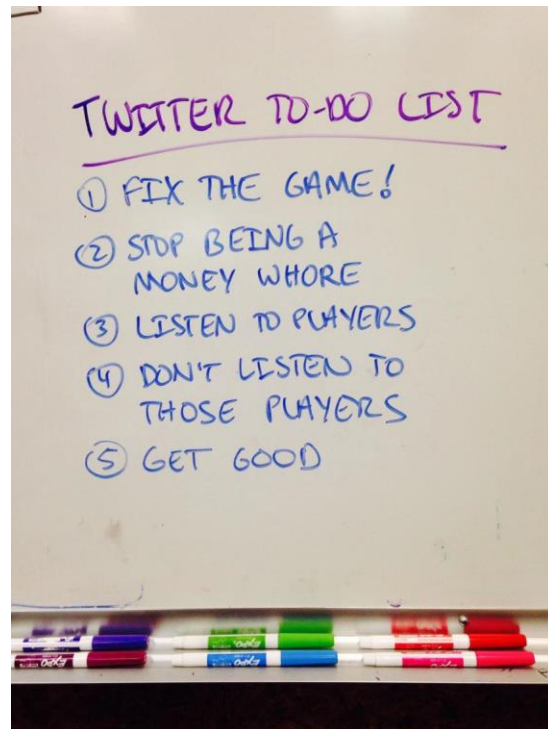 TWITTER TO-DO LIST
① FIX THE GAME!
② STOP BEING A
MONEY WHORE
③ LISTEN TO PLAYERS
④ DON'T LISTEN TO
THOSE PLAYERS
⑤ GET GOOD
EXPO EXPO EXPO
EXPO EXPO EXPO